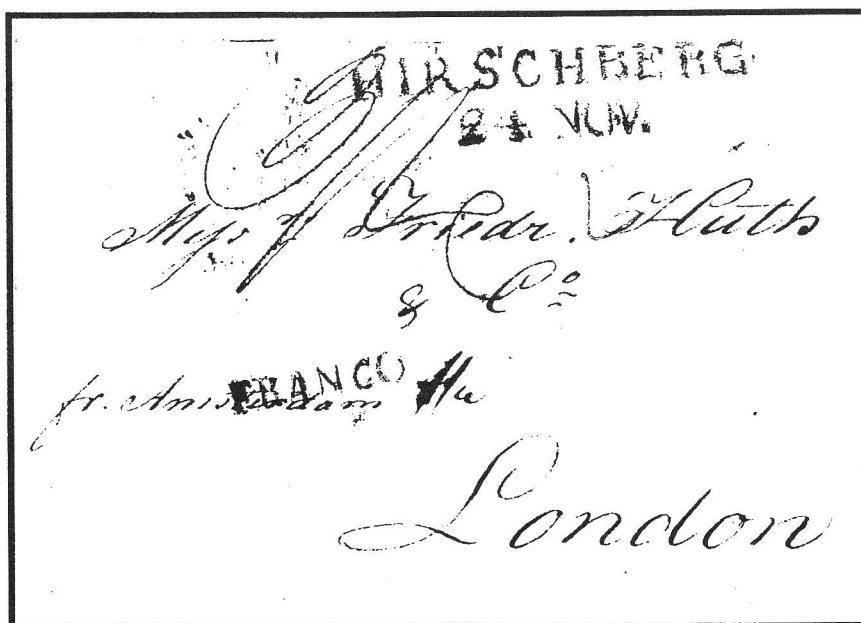 HIRSCHBERG
24 NOV.
Friedr. Huth
& Co
fr. Amsterdam
FRANCO
London